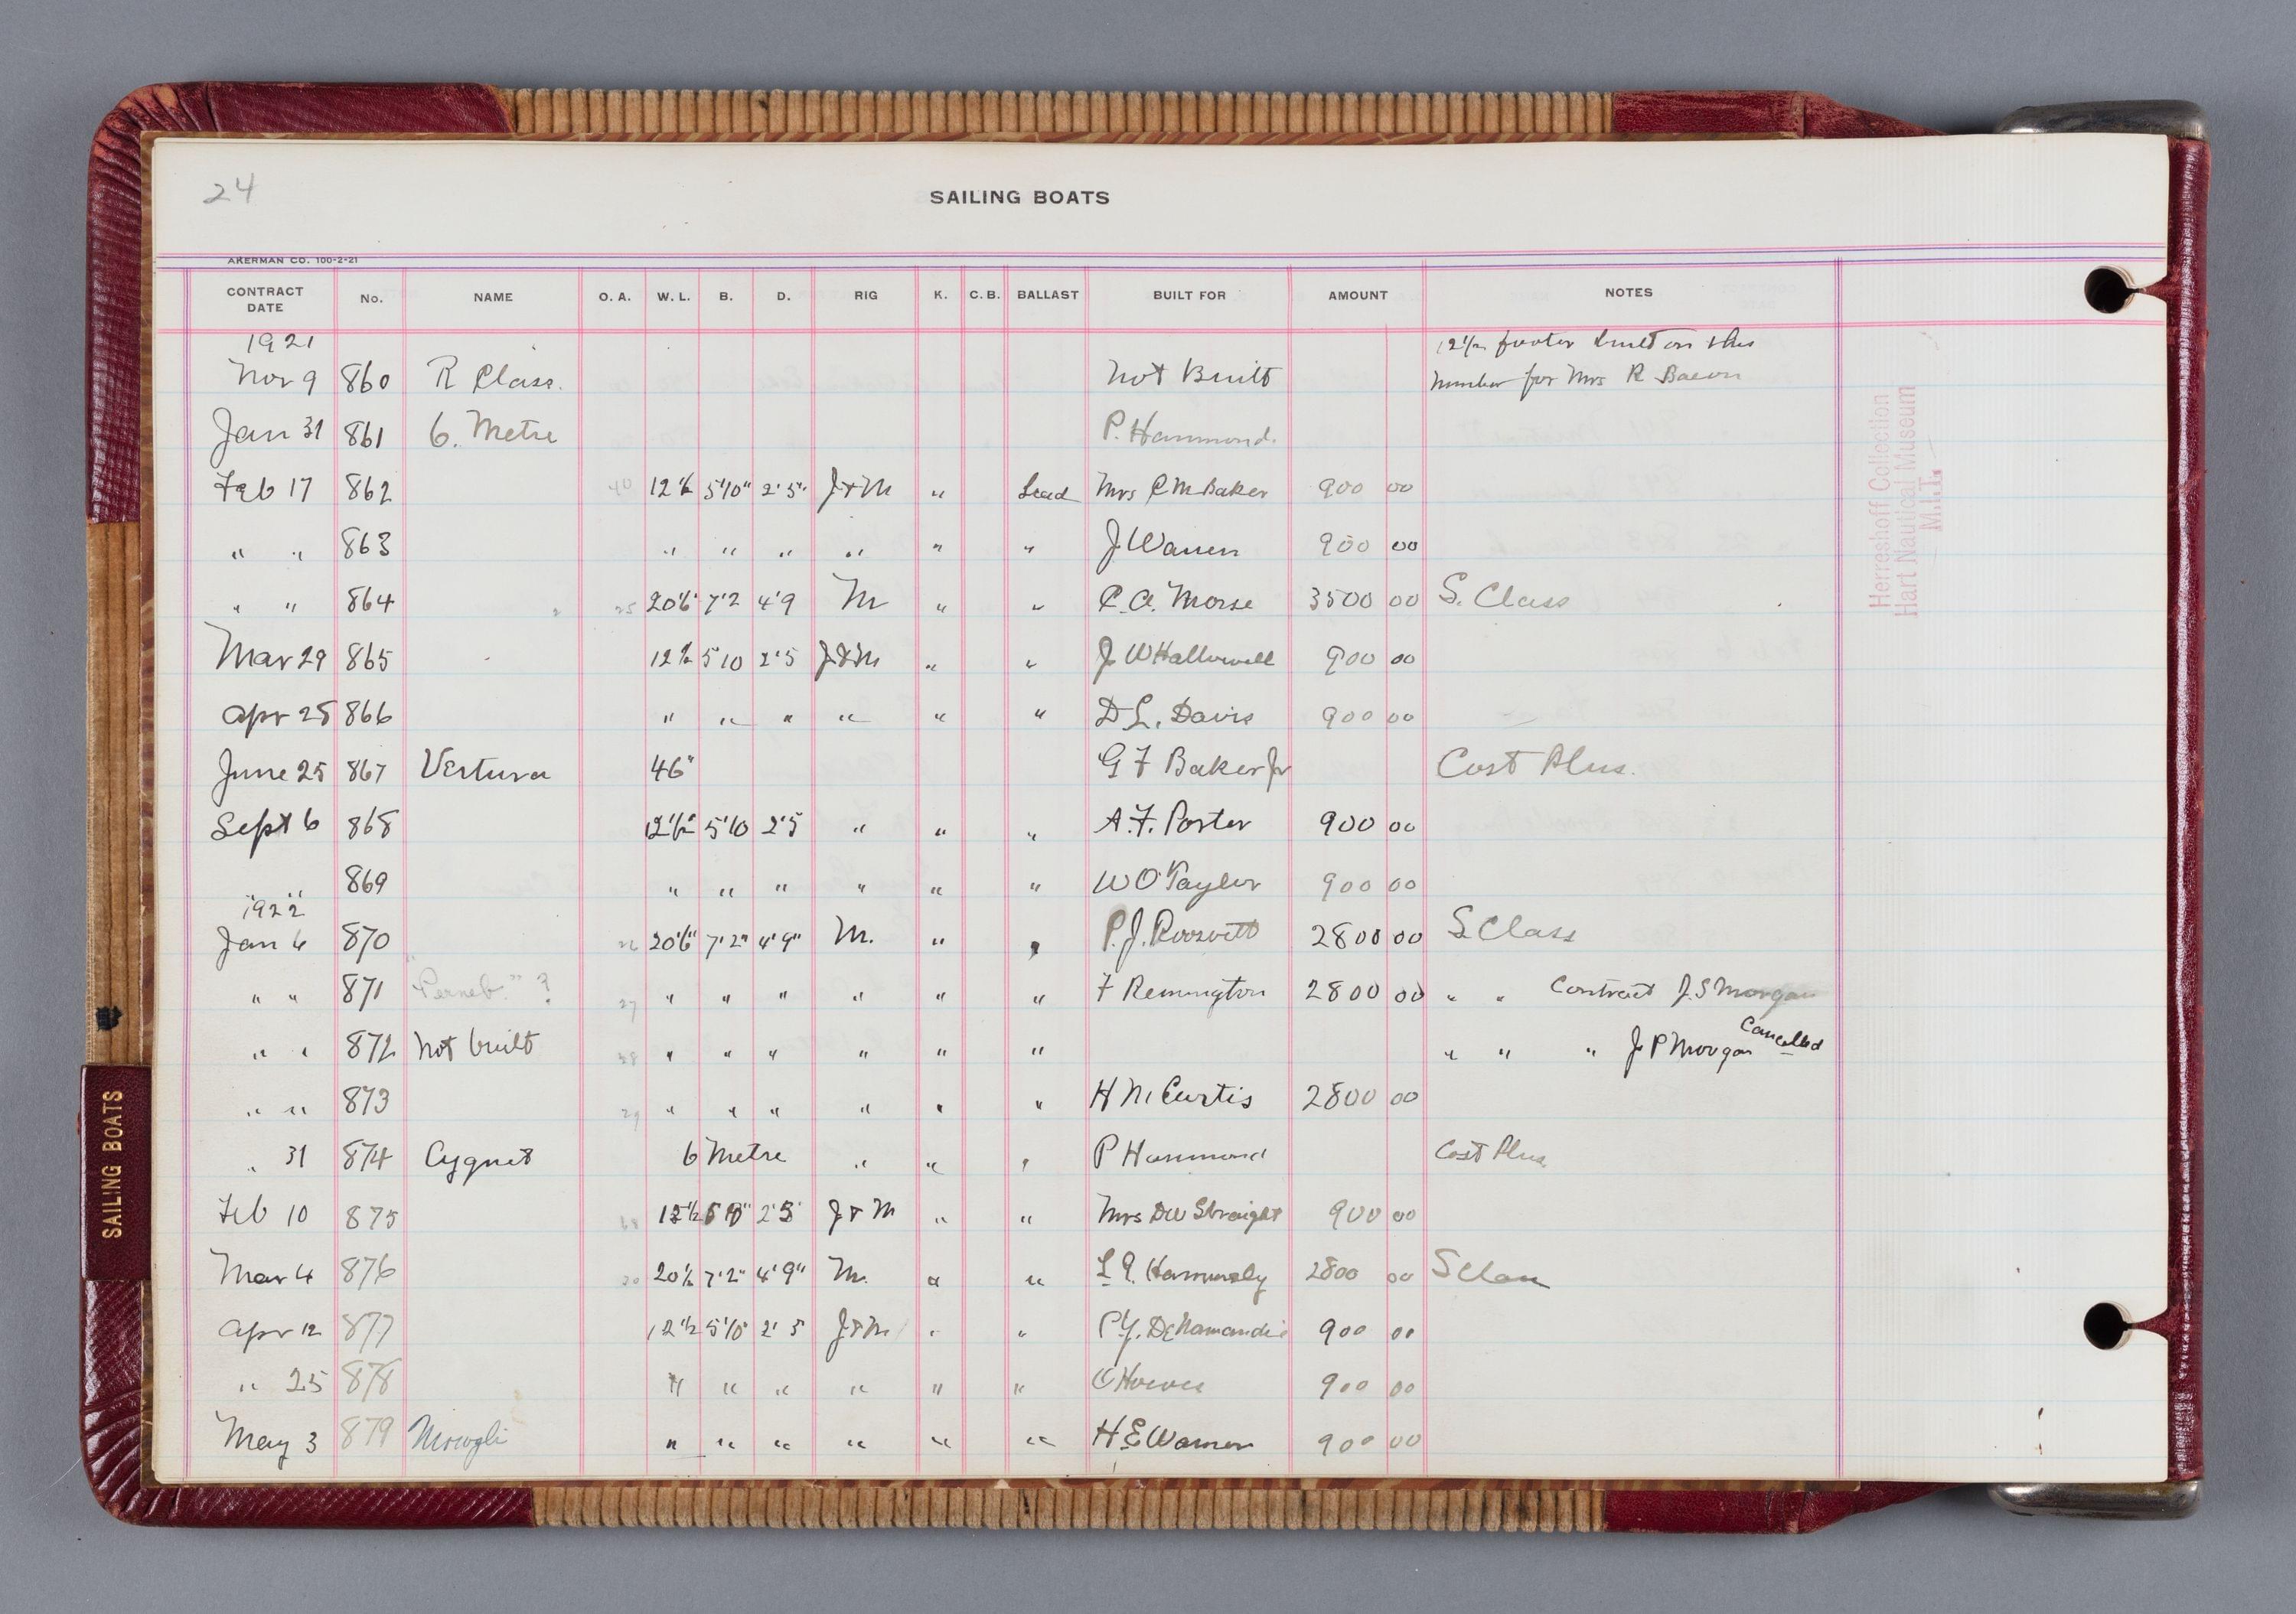 24
SAILING BOATS
AKERMAN CO. 100-2-21
CONTRACT DATE No. NAME O. A. W. L. B. D. RIG K. C. B. BALLAST BUILT FOR AMOUNT NOTES
1921 12½ footer built on this
Nov 9 860 R Class. Not Built number for Mrs R Bacon
Jan 31 861 6. Metre P. Hammond.
Feb 17 862 40 12½ 5'10" 2'5" J & M " Lead Mrs C M Baker 900 00
" " 863 " " " " " " J Warren 900 00
" " 864 25 20'6" 7'2 4'9 M " " C. A. Morse 3500 00 S. Class
Mar 29 865 12½ 5'10 2'5 J & M " " J W Hallowell 900 00
Apr 25 866 " " " " " " D L. Davis 900 00
June 25 867 Ventura 46" G F Baker Jr Cost Plus.
Sept 6 868 12½ 5'10 2'5 " " " A. F. Porter 900 00
869 " " " " " " W O Taylor 900 00
"1922"
Jan 6 870 26 20'6" 7'2" 4'9" M. " " P. J. Roosvelt 2800 00 S Class
" " 871 "Perneb." ? 27 " " " " " " F Remington 2800 00 " " Contract J. S Morgan
" " 872 Not built 28 " " " " " " " " " J P Morgan Cancelled
" " 873 29 " " " " " " H M Curtis 2800 00
" 31 874 Cygnet 6 Metre " " " P Hammond Cost Plus.
Feb 10 875 12½ 5'10" 2'5" J & M " " Mrs D W Straight 900 00
Mar 4 876 30 20½ 7'2" 4'9" M. " " L. G. Hammersly 2800 00 S Class
Apr 12 877 12½ 5'10" 2'5 J & M " " 900 00
" 25 878 " " " " " " 900 00
May 3 879 Mowgli " " " " " " H E Warner 900 00
Herreshoff Collection
Hart Nautical Museum
M.I.T.
SAILING BOATS